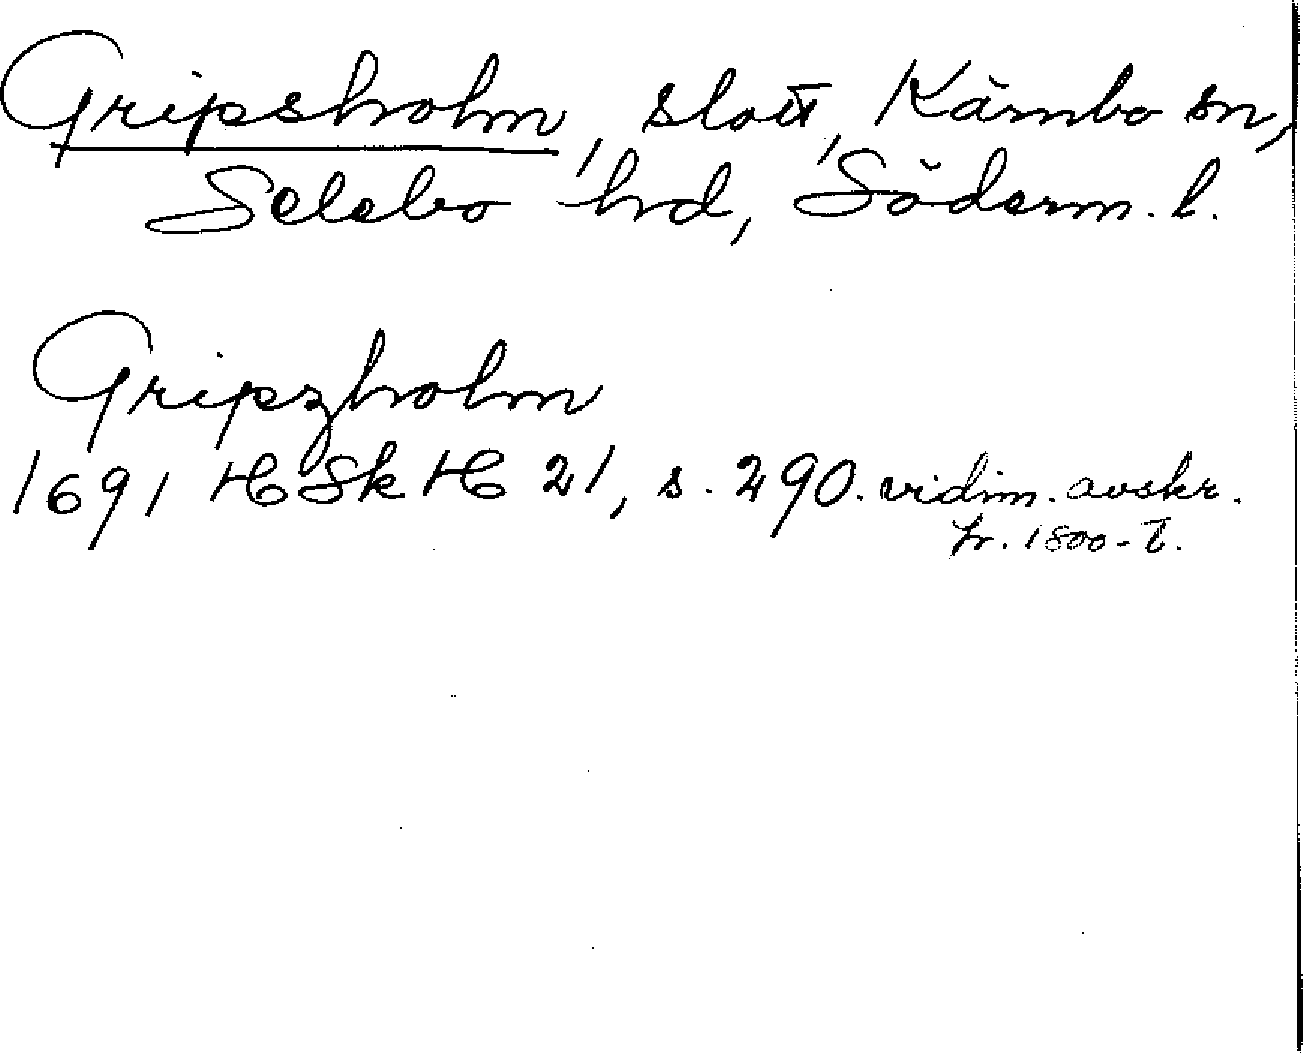 Gripsholm, slott, Kärnbo sn,
Selebo hd, Söderm. l.
Gripzholm
1691 HSkH 21, s. 290. vidim. avskr.
fr. 1800-t.